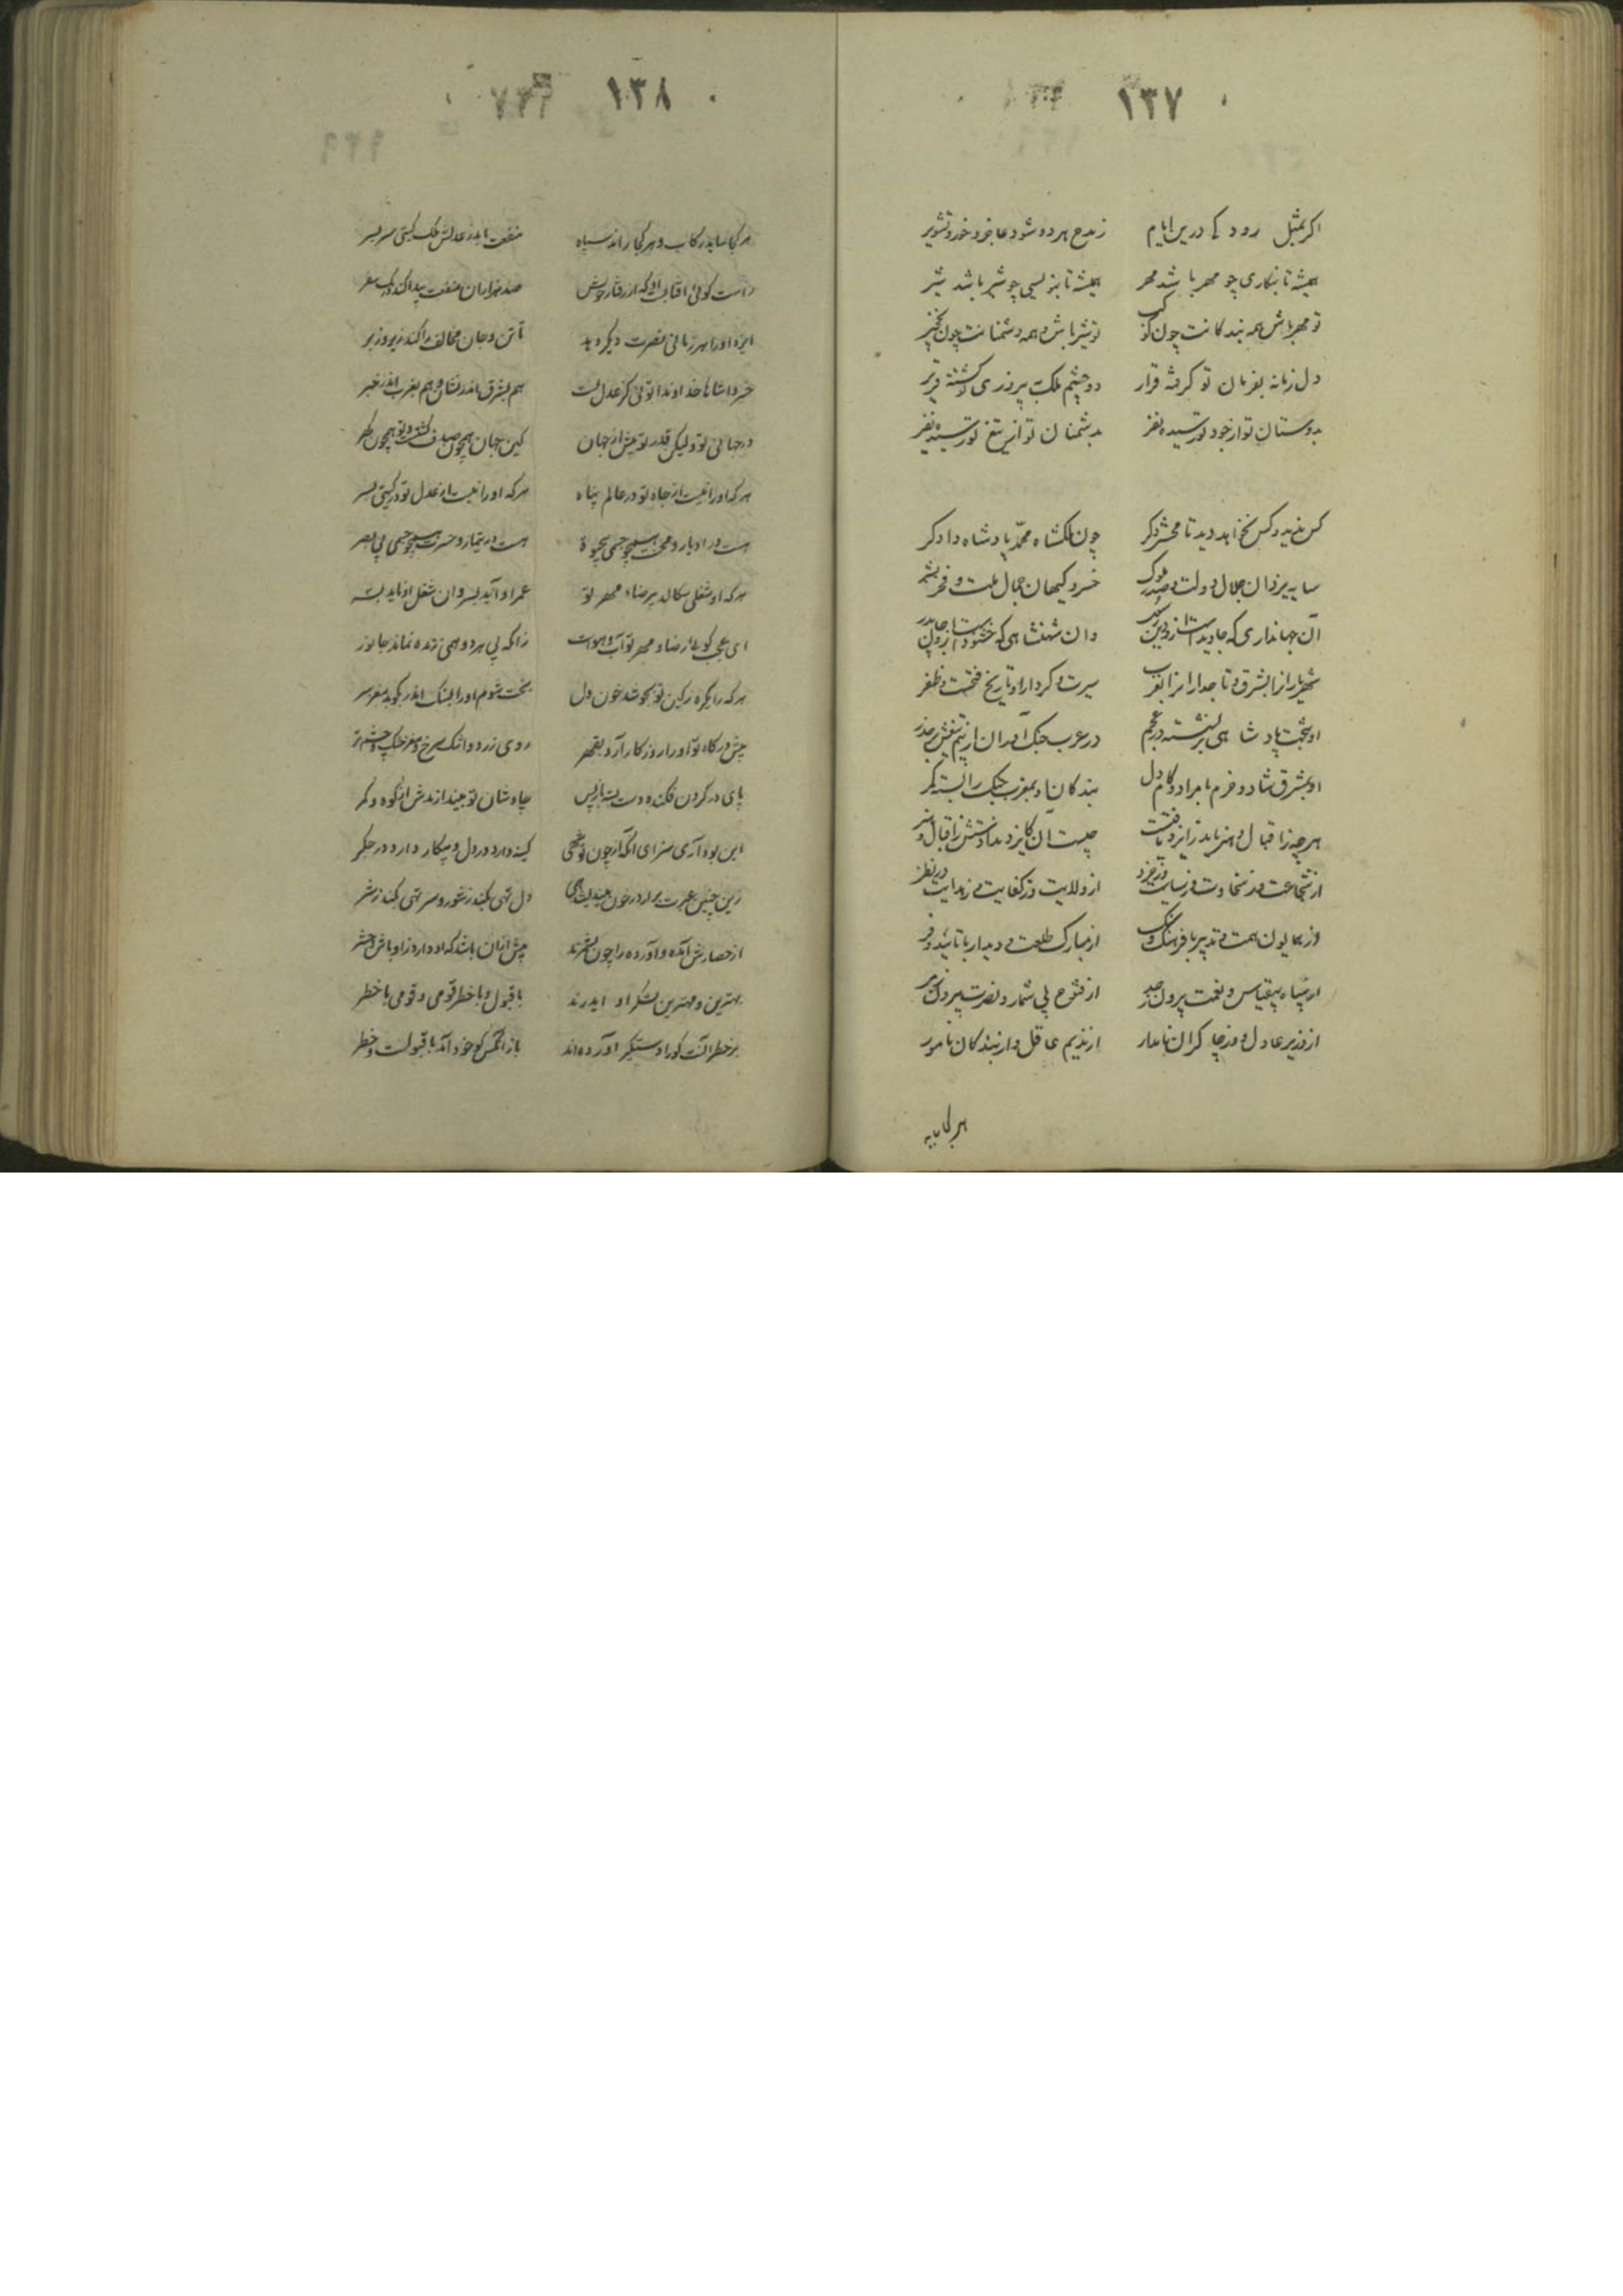 ۱۳۷
اگر بمثل رود کی درین ایام زمدح هر دو شود عاجز و خورد تشویر
همیشه تا بنگاری چو مهر باشد مهر همیشه تا بنویسی چو شیر باشد شیر
تو مهر باش همه بندگانت چون کوکب تو شیر باش و همه دشمنانت چون نخجیر
دل زمانه بفرمان تو گرفته قرار دو چشم ملک بپیروزی تو گشته قریر
بدوستان تو از جود تو رسیده نفر بدشمنان تو از تیغ تو رسیده نفیر
کس ندید و کس نخواهد دید تا محشر دگر چون ملکشاه محمد پادشاه دادگر
سایه یزدان جلال دولت و صدر ملوک خسرو کیهان جمال ملت و فخر بشر
آن جهانداری که جاوید است ازو دین وان شهنشاهی که خشنود است ازو
شهریاران را بشرق و تاجداران را بغرب سیرت و کردار او تاریخ فتحست و ظفر
او بتخت پادشاهی بر نشسته در عجم در عرب جنگ آوران از بیم تیغش بر حذر
او بمشرق شاد و خرم با مراد و کام دل بندگان او بمغرب جنگ را بسته کمر
هر چه ز اقبال و هنر باید ز ایزد یافتست چیست آن کایزد ندادستش ز اقبال و هنر
از شجاعت وز سخاوت وز سیاست وز خرد از ولایت وز کفایت وز هدایت در نظر
وز همایون همت و تدبیر با فرهنگ و سنگ از مبارک طلعت و دیدار با تایید و فر
از سپاه بیقیاس و نعمت بیرون ز حد از فتوح بی شمار و نصرت بیرون ز مر
از وزیر عادل و وز چاکران نامدار از ندیم عاقل و از بندگان نامور
هر کجا ساید
۱۳۸
هر کجا ساید رکاب و هر کجا راند سپاه منفعت یابد ز عدلش ملک گیتی سر بسر
راست گوئی آفتابست او که از رفتار خویش صد هزاران منفعت پیدا کند در یک سفر
ایزد او را هر زمانی نصرت دیگر دهد تا تن و جان مخالف را کند زیر و زبر
خسروا شاها خداوندا توئی کز عدل تست هم بشرق اندر نشان و هم بغرب اندر خبر
در جهانی تو ولیکن قدر تو بیش از جهان کین جهان همچون صدف گشت و تو همچون گهر
هر که او را نیست از جاه تو در عالم پناه هر که او را نیست از عدل تو در گیتی
هست در ادبار و محنت همچو جسمی بی حیوة هست در تیمار و حسرت همچو چشمی بی بصر
هر که او شغلی سگالد بی رضا و مهر تو عمر او آید بسر وان شغل او ناید بسر
ای عجب گوئی رضا و مهر تو آب و هواست زانکه بی هر دو همی زنده نماند جانور
هر که را یکره ز کین تو بجوشد خون دل بخت شوم او را بسنگ اندر بکوبد مغز سر
پیش درگاه تو او را روزگار آرد بقهر روی زرد و اشک سرخ و مغز خشک و چشم تر
پای در گردن فکنده دست بسته باز پس چاوشان تو بیندازندش از کوه و کمر
این بود آری سزای آنکه از چون تو شهی کینه دارد در دل و پیکار دارد در جگر
زین چنین عبرت مرا در خون همی دل تهی بکند ز شور و سر تهی بکند ز شر
از حصارش آمده و آورده را چون بنگرند بیش ازان باشد که او دارد ز اوباش و حشر
بهترین و مهترین لشکر او ایدرند با قبول و با خطر قومی و قومی با خطر
بر خطر آنست کورا دستگیر آورده اند باز آنکس کو خود آمد با قبولست و خطر